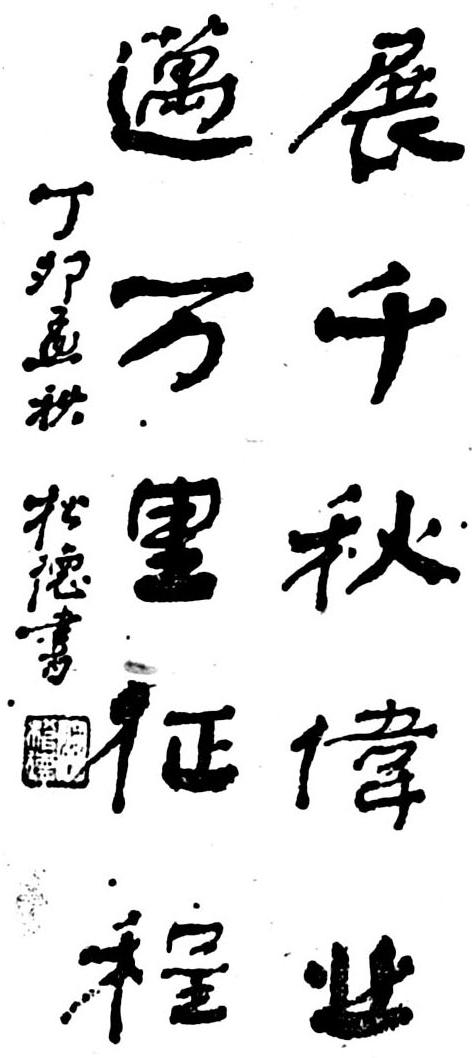 展千秋偉业
邁万里征程
丁卯孟秋 松德書